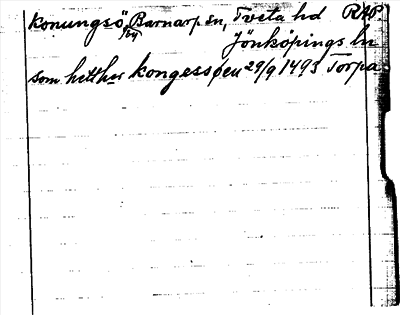 konungsö, Barnarp sn, Tveta hd RAP.
/by
Jönköpings ln
som hether kongessøen 29/9 1493 Torpa